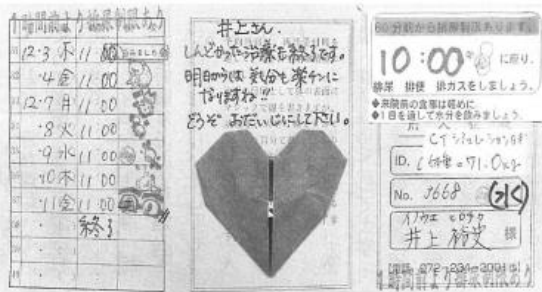 1時間前より排尿制限あり
12・3 木 11:00
・4 金 11:00
12・7 月 11:00
・8 火 11:00
・9 水 11:00
・10 木 11:00
・11 金 11:00
終了
井上さん.
しんどかった治療も終了です。
明日からは 気分も楽チンに
なりますね!!
どうぞ おだいじにして下さい。
60分前から排尿制限あります。
10:00 に座り、
排尿 排便 排ガスをしましょう。
◆来院前の食事は軽めに
◆1日を通して水分を飲みましょう。
CTシミュレーション
ID. 体重 = 71.0kg
No. 3668
イノウエ ヒロチカ
井上 裕史 様
1時間前より排尿制限あり